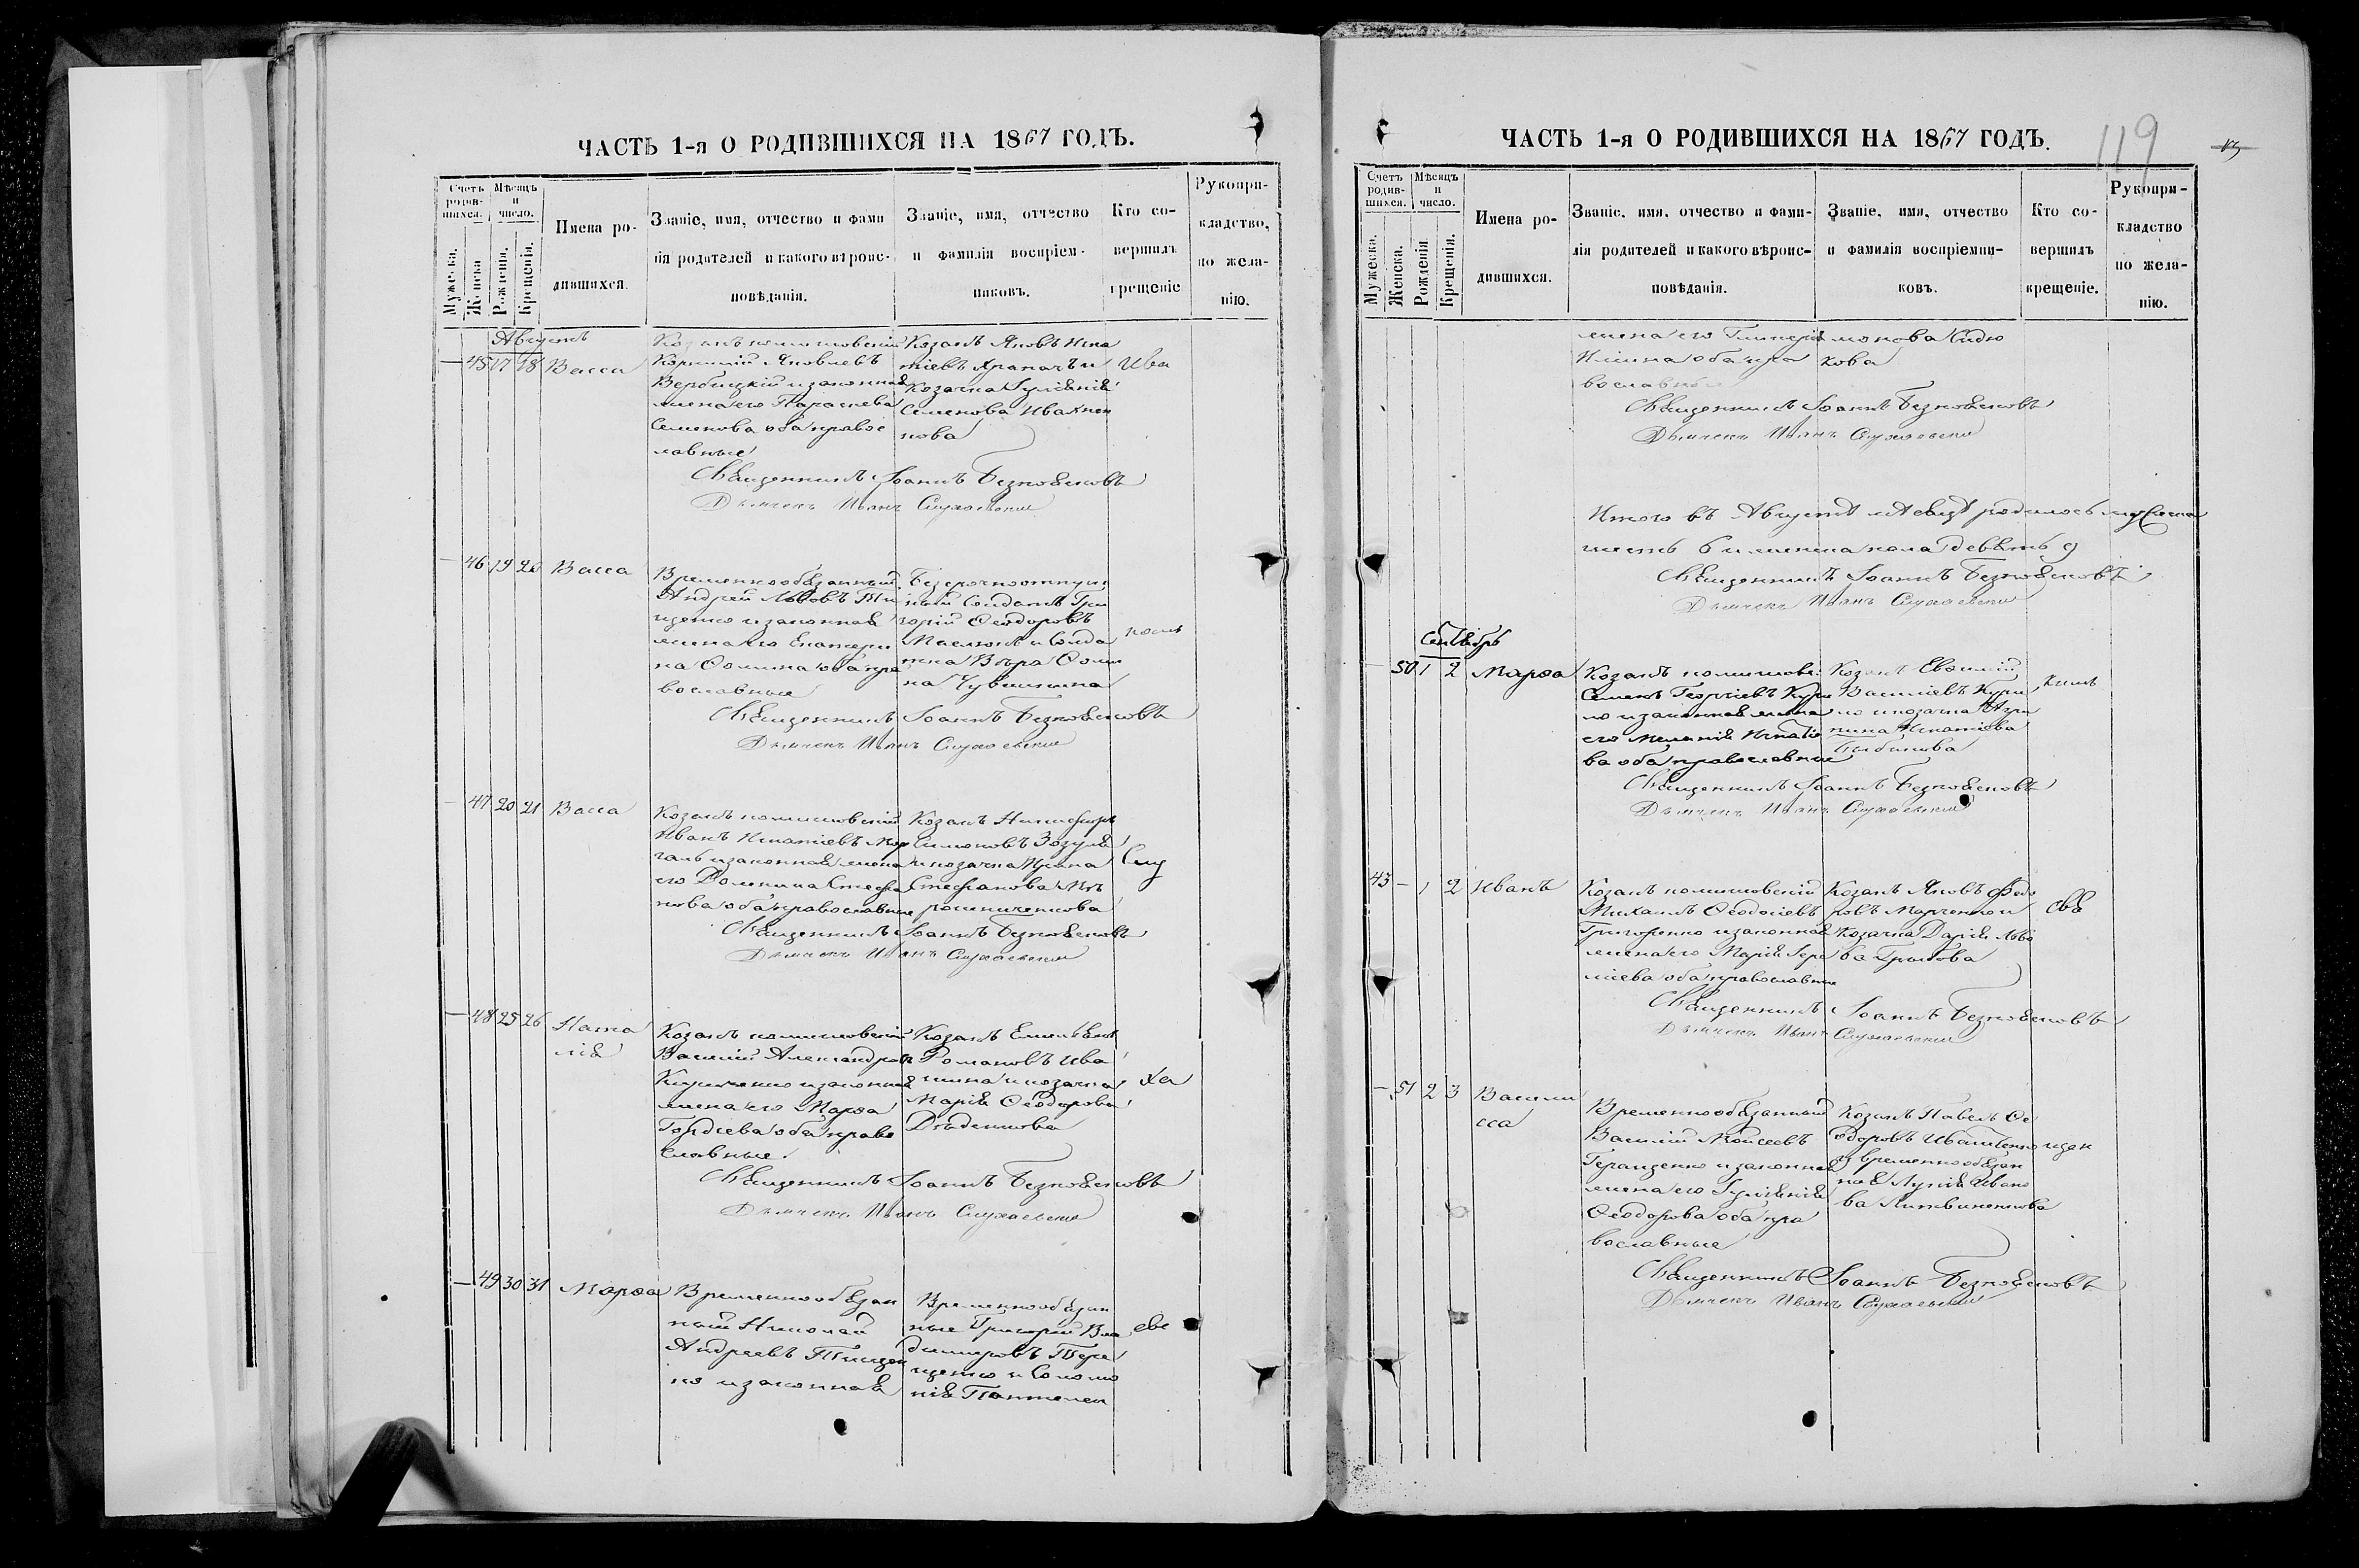 ЧАСТЬ 1-я О РОДИВШИХСЯ НА 1867 ГОДЪ.
Счетъ родив-шихся.
Мѣсяцъ и число.
Мужеска.
Женска
Рожденія.
Крещенія.
Имена ро-
дившихся.
Званіе, имя, отчество и фами
лія родителей и какого вѣроис-
повѣданія.
Званіе, имя, отчество
и фамилія воспріем-
никовъ.
Кто со-
вершилъ
крещеніе
Рукопри-
кладство,
по жела-
нію.
Августъ
45 17 18 Васса
Козакъ
Яковлевъ
Вербицкій и законная
жена его Параскева
Семенова оба правос
лавные
Козакъ Яковъ Игна
тіевъ Храпачъ и
Козачка Іуліанія
Семенова Ивахнен
кова
Священникъ Іоаннъ Безпоясковъ
Дьячекъ Иванъ
46 19 20 Васса
Временнообязанный
Андрей Львовъ Ти
щенко и законная
жена его Екатери
на Ѳомина оба пра
вославные
Безсрочноотпуск
ный Солдатъ Гри
горій Ѳеодоровъ
Маслюкъ и Солда
тка Вѣра Ѳоми
на
Священникъ Іоаннъ Безпоясковъ
Дьячекъ Иванъ
47 20 21 Васса
Козакъ
Иванъ Игнатіевъ
и законная жена
его Домника Стефа
нова оба православные
Козакъ Никифоръ
Симоновъ Зозуля
и козачка Ирина
Стефанова Ми
рошниченкова
Священникъ Іоаннъ Безпоясковъ
Дьячекъ Иванъ
48 25 26 Ната
лія
Козакъ
Василій Александровъ
Кириченко и законная
жена его Марѳа
Гордіева оба право
славные.
Козакъ Емеліанъ
Романовъ Ива
шина и козачка
Марія Ѳеодорова
Дяденкова
Священникъ Іоаннъ Безпоясковъ
Дьячекъ Иванъ
49 30 31 Марѳа
Временнообязан
ный Николай
Андреевъ Тищен
ко и законная
Временнообязан
ные Григорій Вла
димировъ Тере
щенко и Соломо
нія Пантелеи
ЧАСТЬ 1-я О РОДИВШИХСЯ НА 1867 ГОДЪ.
119
Счетъ родив-шихся.
Мѣсяцъ и число.
Мужеска.
Женска.
Рожденія.
Крещенія.
Имена ро-
дившихся.
Званіе, имя, отчество и фами-
лія родителей и какого вѣроис-
повѣданія.
Званіе, имя, отчество
и фамилія воспріемни-
ковъ.
Кто со-
вершилъ
крещеніе.
Рукопри-
кладство
по жела-
нію.
жена его Гликерія
Ильина оба пра
вославные
монова Сидо
кова
Священникъ Іоаннъ Безпоясковъ
Дьячекъ Иванъ
Итого въ Августѣ мѣсяцѣ родилось мужеска
шесть 6 и женска пола девять 9
Священникъ Іоаннъ Безпоясковъ
Дьячекъ Иванъ
Сентябрь
50 1 2 Марѳа
Козакъ
Семенъ Георгіевъ Кури
ло и законная жена
его Меланія Игнатіе
ва оба православные
Козакъ Евѳимій
Василіевъ Кури
ло и козачка Агри
пина Игнатіева
Священникъ Іоаннъ Безпоясковъ
Дьячекъ Иванъ
43 1 2 Иванъ
Козакъ
Михаилъ Ѳеодосіевъ
Григоренко и законная
жена его Марія Іере
міева оба православные
Козакъ Яковъ Федо
ровъ Марченко и
Козачка Дарія Льво
ва
Священникъ Іоаннъ Безпоясковъ
Дьячекъ Иванъ
51 2 3 Васили
сса
Временнообязанный
Василій Моисеевъ
Геращенко и законная
жена его Іуліанія
Ѳеодорова оба пра
вославные
Козакъ Павелъ Ѳе
одоровъ Иващенко
и временнообязан
ная Лукія Ивано
ва Литвиненкова
Священникъ Іоаннъ Безпоясковъ
Дьячекъ Иванъ